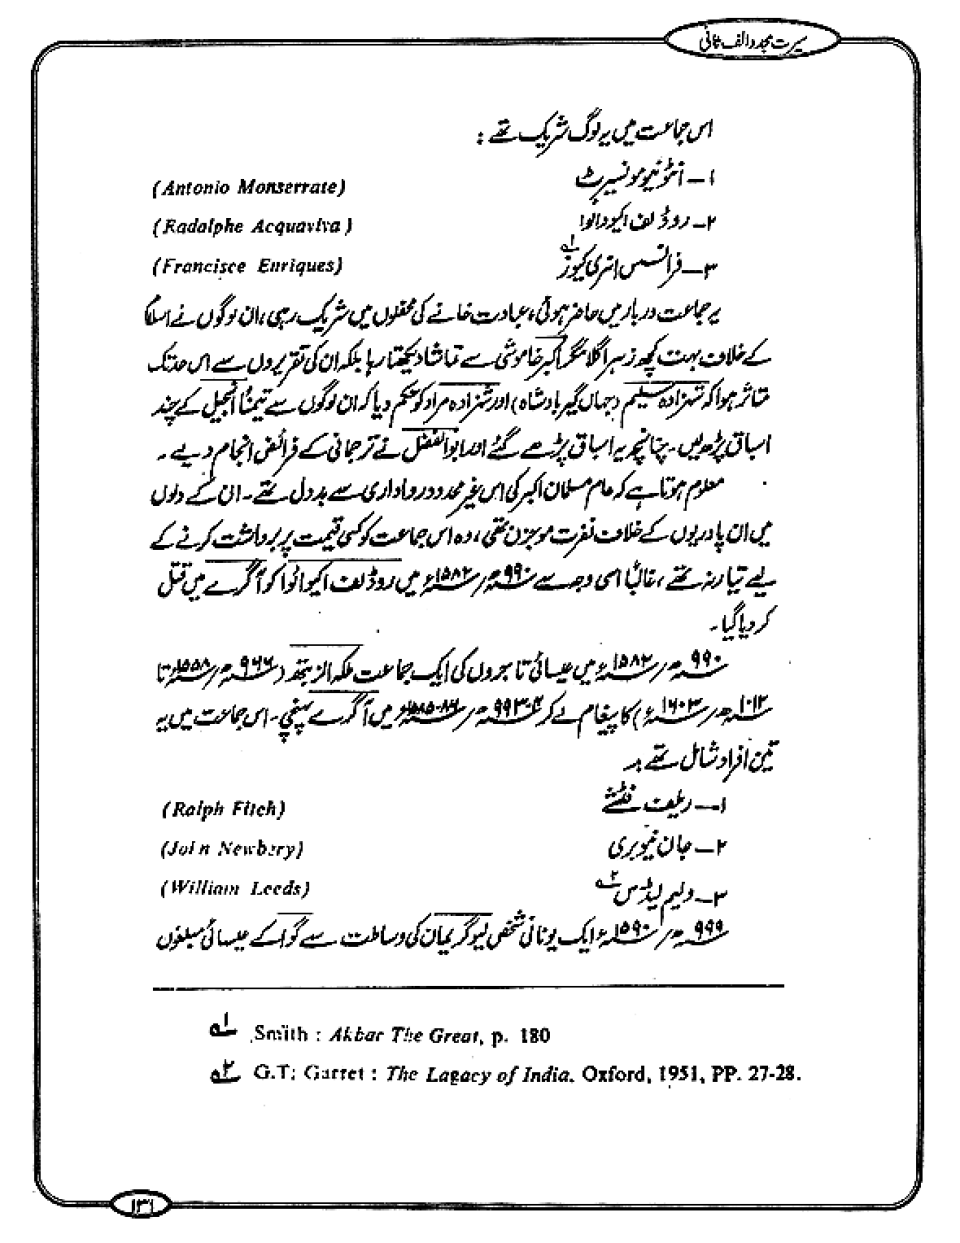 سیرت مجدد الف ثانی
اس جماعت میں یہ لوگ شریک تھے :
۱ــ انٹونیو مونسیرٹ (Antonio Monserrate)
۲ــ روڈلف اکیوداوا (Radalphe Acquaviva)
۳ــ فرانسس انری کیوز ؎۱ (Francisce Enriques)
یہ جماعت دربار میں حاضر ہوئی، عبادت خانے کی محفلوں میں شریک رہی، ان لوگوں نے اسلام
کے خلاف بہت کچھ زہر اگلا مگر اکبر خاموشی سے تماشا دیکھتا رہا بلکہ ان کی تقریروں سے اس حد تک
متاثر ہوا کہ شہزادہ سلیم (جہاں گیر بادشاہ) اور شہزادہ مراد کو حکم دیا کہ ان لوگوں سے تیمناً انجیل کے چند
اسباق پڑھیں۔ چنانچہ یہ اسباق پڑھے گئے اور ابو الفضل نے ترجمانی کے فرائض انجام دیے۔
معلوم ہوتا ہے کہ عام مسلمان اکبر کی اس غیر محدود رواداری سے بددل تھے۔ ان کے دلوں
میں ان پادریوں کے خلاف نفرت موجزن تھی، وہ اس جماعت کو کسی قیمت پر برداشت کرنے کے
لیے تیار نہ تھے، غالباً اسی وجہ سے ۹۹۰ھ/۱۵۸۲ء میں روڈلف اکیواوا کو آگرے میں قتل
کر دیا گیا۔
۹۹۰ھ/۱۵۸۲ء میں عیسائی تاجروں کی ایک جماعت ملکہ الزبتھ (۹۶۶ھ/۱۵۵۸ء تا
۱۰۱۲ھ/۱۶۰۳ء) کا پیغام لے کر ۴-۹۹۳ھ/۸۶-۱۵۸۵ء میں آگرے پہنچی۔ اس جماعت میں یہ
تین افراد شامل تھے :۔
۱ــ ریلف فٹشے (Ralph Fitch)
۲ــ جان نیوبری (John Newbery)
۳ــ ولیم لیڈس ؎۲ (William Leeds)
۹۹۹ھ/۱۵۹۰ء ایک یونانی شخص لیوگریمان کی وساطت سے گوا کے عیسائی مبلغوں
؎۱ Smith : Akbar The Great, p. 180
؎۲ G.T. Garret : The Lagacy of India. Oxford, 1951, PP. 27-28.
۱۳۶